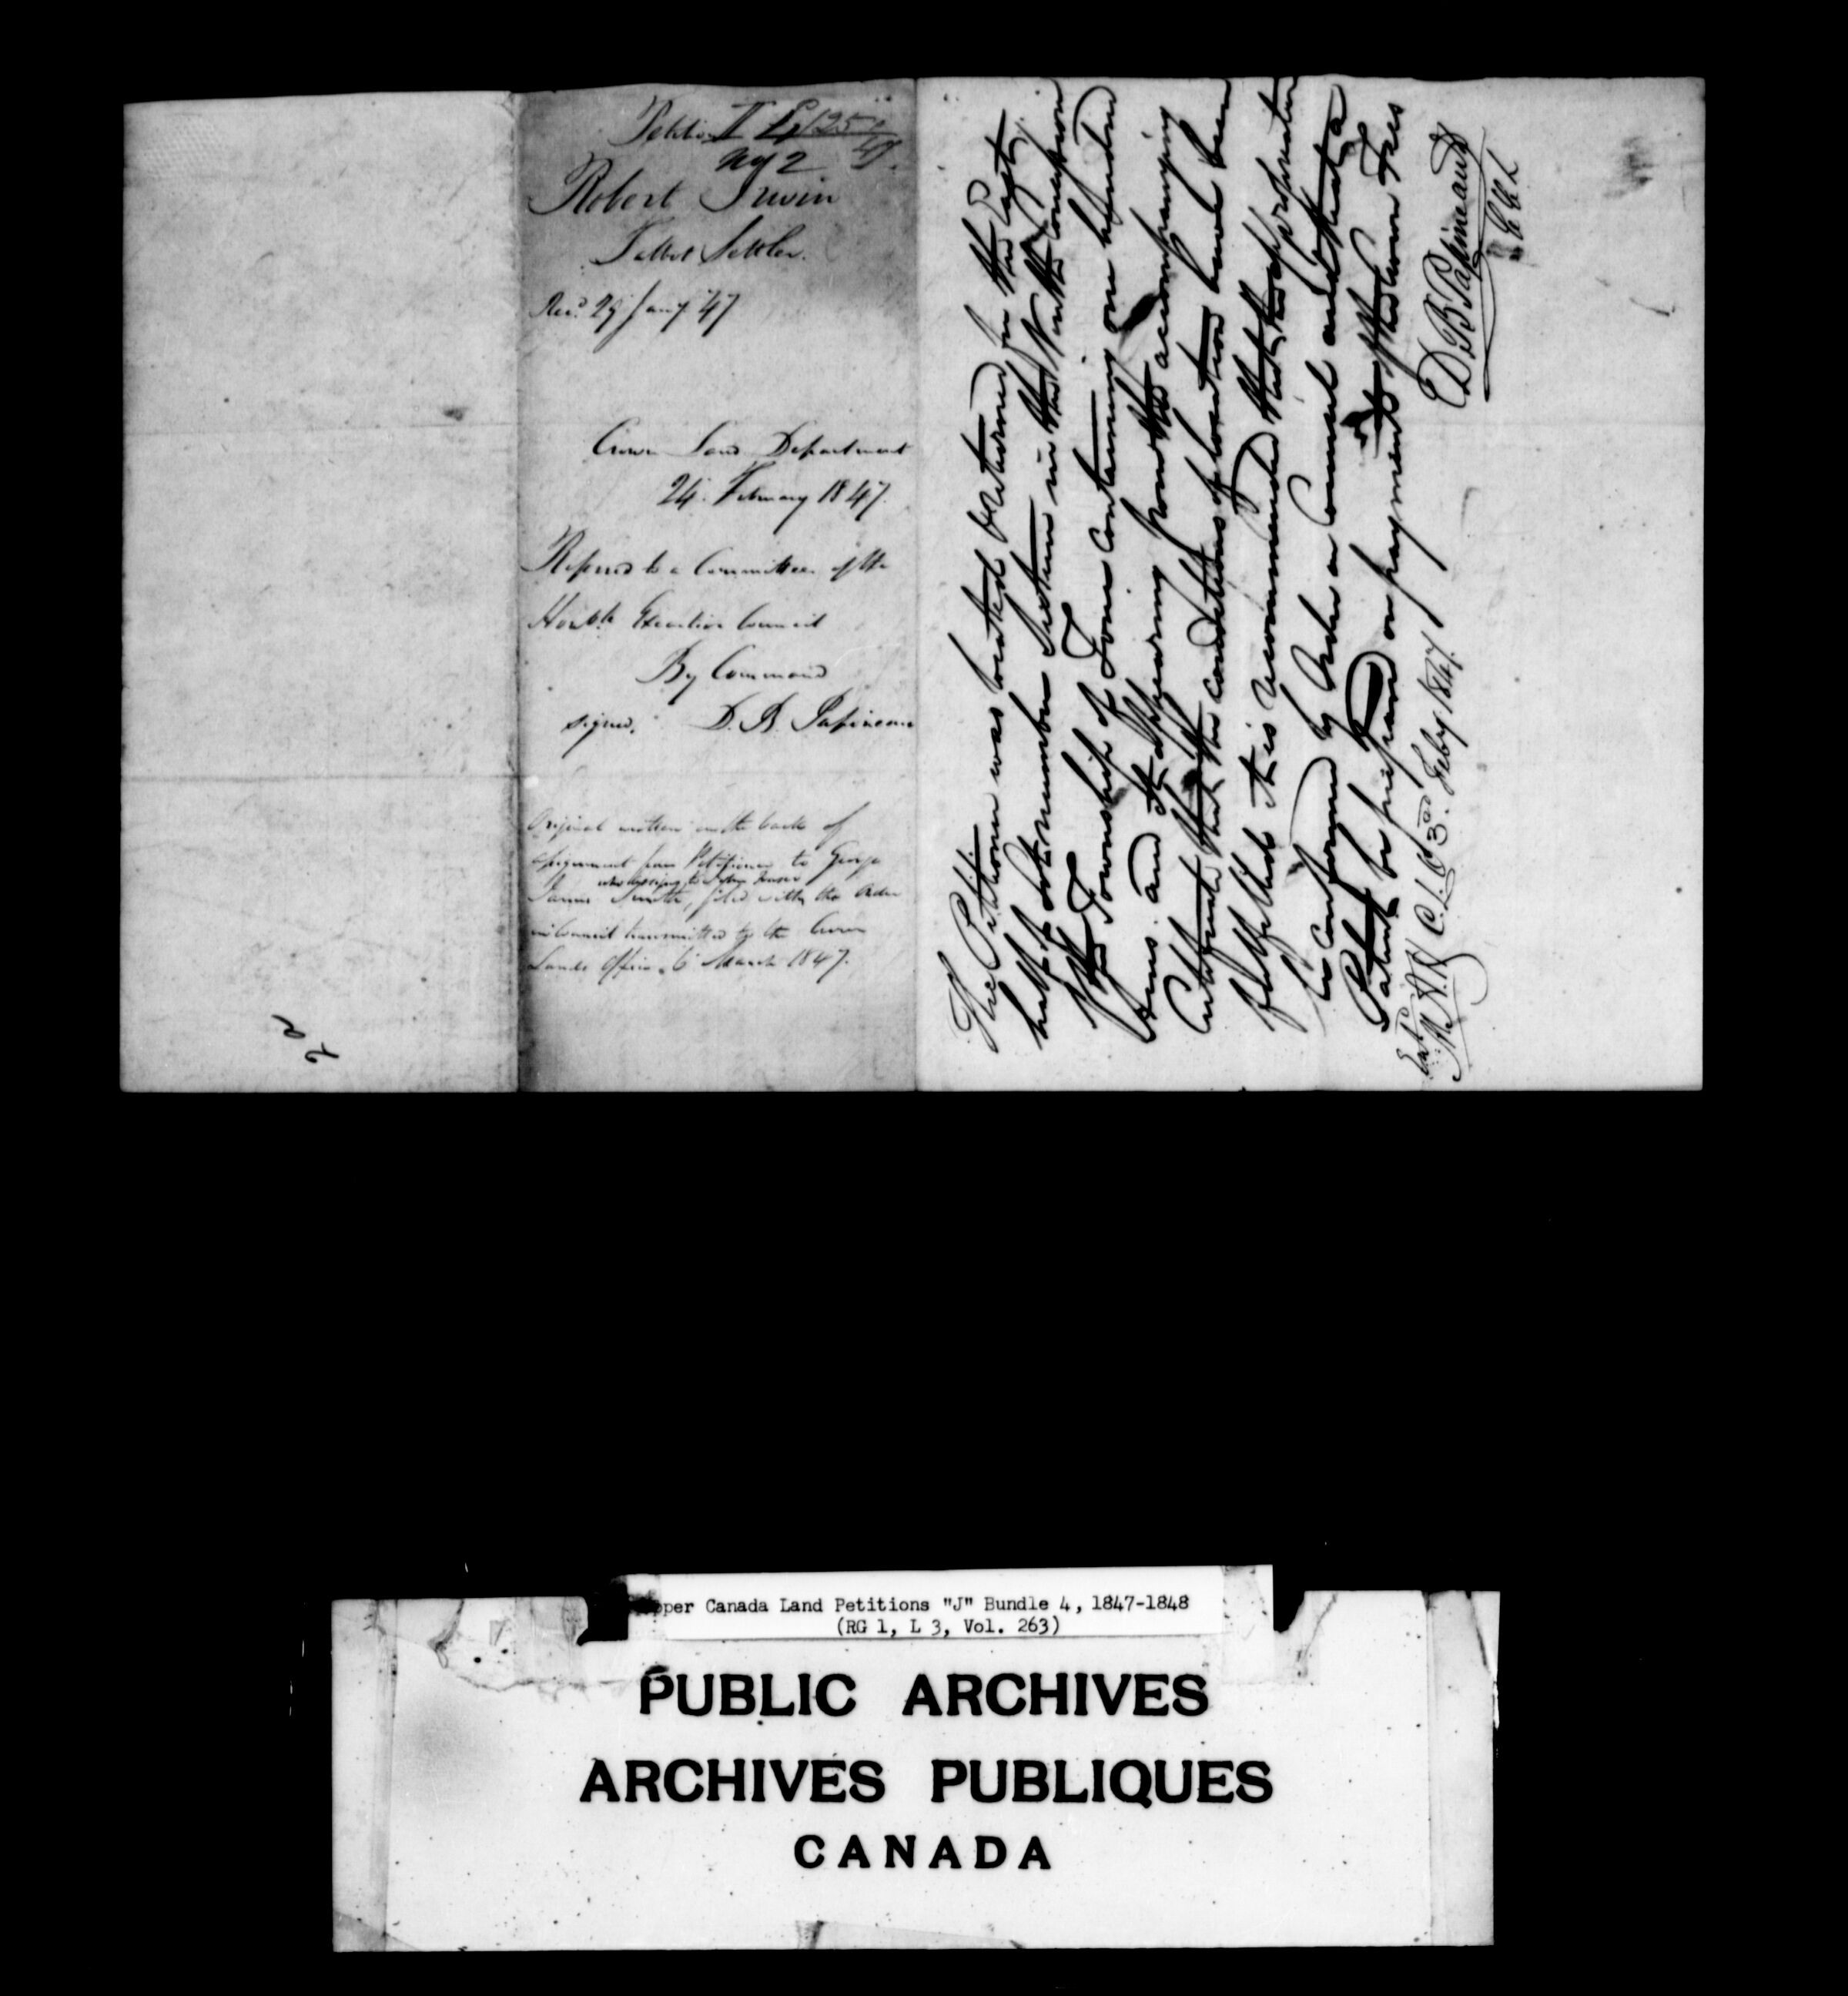 Petition
No 2
Robert Irwin
Talbot Settler.
Rec.d 29 Jany '47
Crown Land Department
24. February 1847.
Referred to a Committee of the
Honble Executive Council
By Command
signed, D. B. Papineau
Original written on the back of
assignment from Petitioner to George
James Smith, filed with the Order
in Council transmitted to the Crown
Lands Office, 6 March 1847.
The Petitioner was located & returned for the East
half of Lot number Sixteen in the Ninth Concession
of the Township of containing one hundred
Acres. and it Appearing from the accompanying
Certificate that the conditions of location have been
fulfilled it is recommended that the appropriation
be confirmed by Order in Council and that a
Patent be prepared on payment of the Patent Fees
C.L.O 3rd Feby 1847
D B Papineau
CCL
Upper Canada Land Petitions "J" Bundle 4, 1847-1848
(RG 1, L 3, Vol. 263)
PUBLIC ARCHIVES
ARCHIVES PUBLIQUES
CANADA